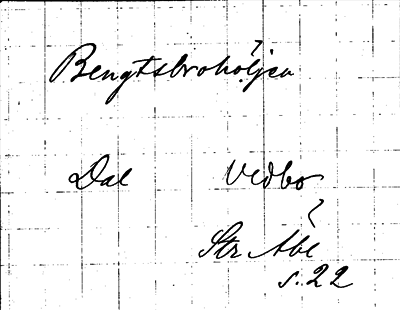 Bengtsbrohöljen
Dal Vedbo
Str Åbe
s. 22